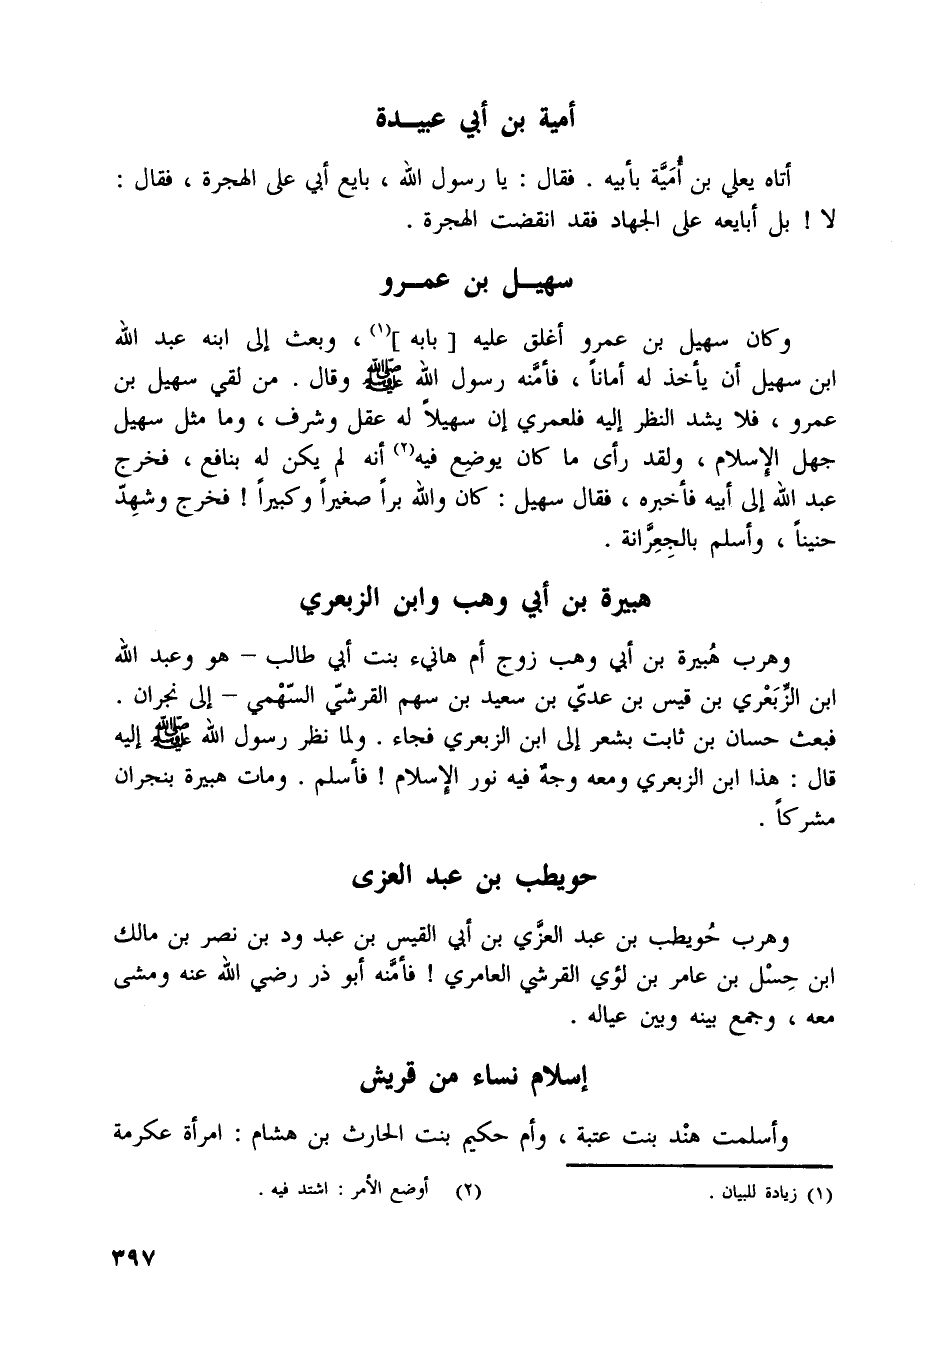 أمية بن أبي عبيـــدة
أتاه يعلي بن أُمَيَّة بأبيه . فقال : يا رسول الله ، بايع أبي على الهجرة ، فقال :
لا ! بل أبايعه على الجهاد فقد انقضت الهجرة .
سهيـــل بن عمـــرو
وكان سهيل بن عمرو أغلق عليه [ بابه ](١) ، وبعث إلى ابنه عبد الله
ابن سهيل أن يأخذ له أماناً ، فأمَّنه رسول الله ﷺ وقال . من لقي سهيل بن
عمرو ، فلا يشد النظر إليه فلعمري إن سهيلاً له عقل وشرف ، وما مثل سهيل
جهل الإسلام ، ولقد رأى ما كان يوضِع فيه(٢) أنه لم يكن له بنافع ، فخرج
عبد الله إلى أبيه فأخبره ، فقال سهيل : كان والله براً صغيراً وكبيراً ! فخرج وشهِدّ
حنيناً ، وأسلم بالجِعِرَّانة .
هبيرة بن أبي وهب وابن الزبعري
وهرب هُبيرة بن أبي وهب زوج أم هانيء بنت أبي طالب – هو وعبد الله
ابن الزِّبَعْري بن قيس بن عديّ بن سعيد بن سهم القرشيّ السّهْمي – إلى نجران .
فبعث حسان بن ثابت بشعر إلى ابن الزبعري فجاء . ولما نظر رسول الله ﷺ إليه
قال : هذا ابن الزبعري ومعه وجهٌ فيه نور الإسلام ! فأسلم . ومات هبيرة بنجران
مشركاً .
حويطب بن عبد العزى
وهرب حُويطب بن عبد العزَّي بن أبي القيس بن عبد ود بن نصر بن مالك
ابن حِسْل بن عامر بن لؤي القرشي العامري ! فأمَّنه أبو ذر رضي الله عنه ومشى
معه ، وجمع بينه وبين عياله .
إسلام نساء من قريش
وأسلمت هنْد بنت عتبة ، وأم حكيم بنت الحارث بن هشام : امرأة عكرمة
(١) زيادة للبيان . (٢) أوضع الأمر : اشتد فيه .
٣٩٧